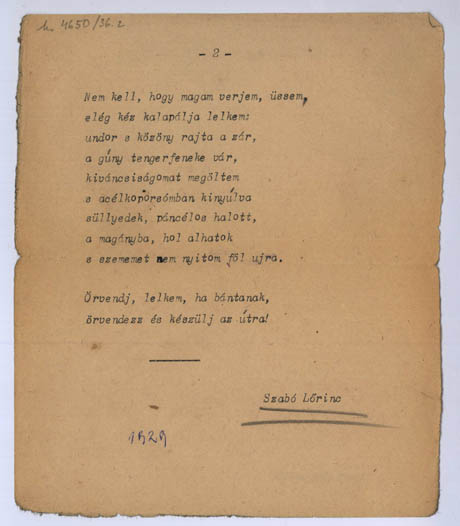 4650/36.2
- 2 -
Nem kell, hogy magam verjem, üssem,
elég kéz kalapálja lelkem:
undor s közöny rajta a zár,
a gúny tengerfeneke vár,
kiváncsiságomat megöltem
s acélkoporsómban kinyúlva
süllyedek, páncélos halott,
a magányba, hol alhatok
s szememet nem nyitom föl ujra.
Örvendj, lelkem, ha bántanak,
örvendezz és készülj az útra!
Szabó Lőrinc
1929